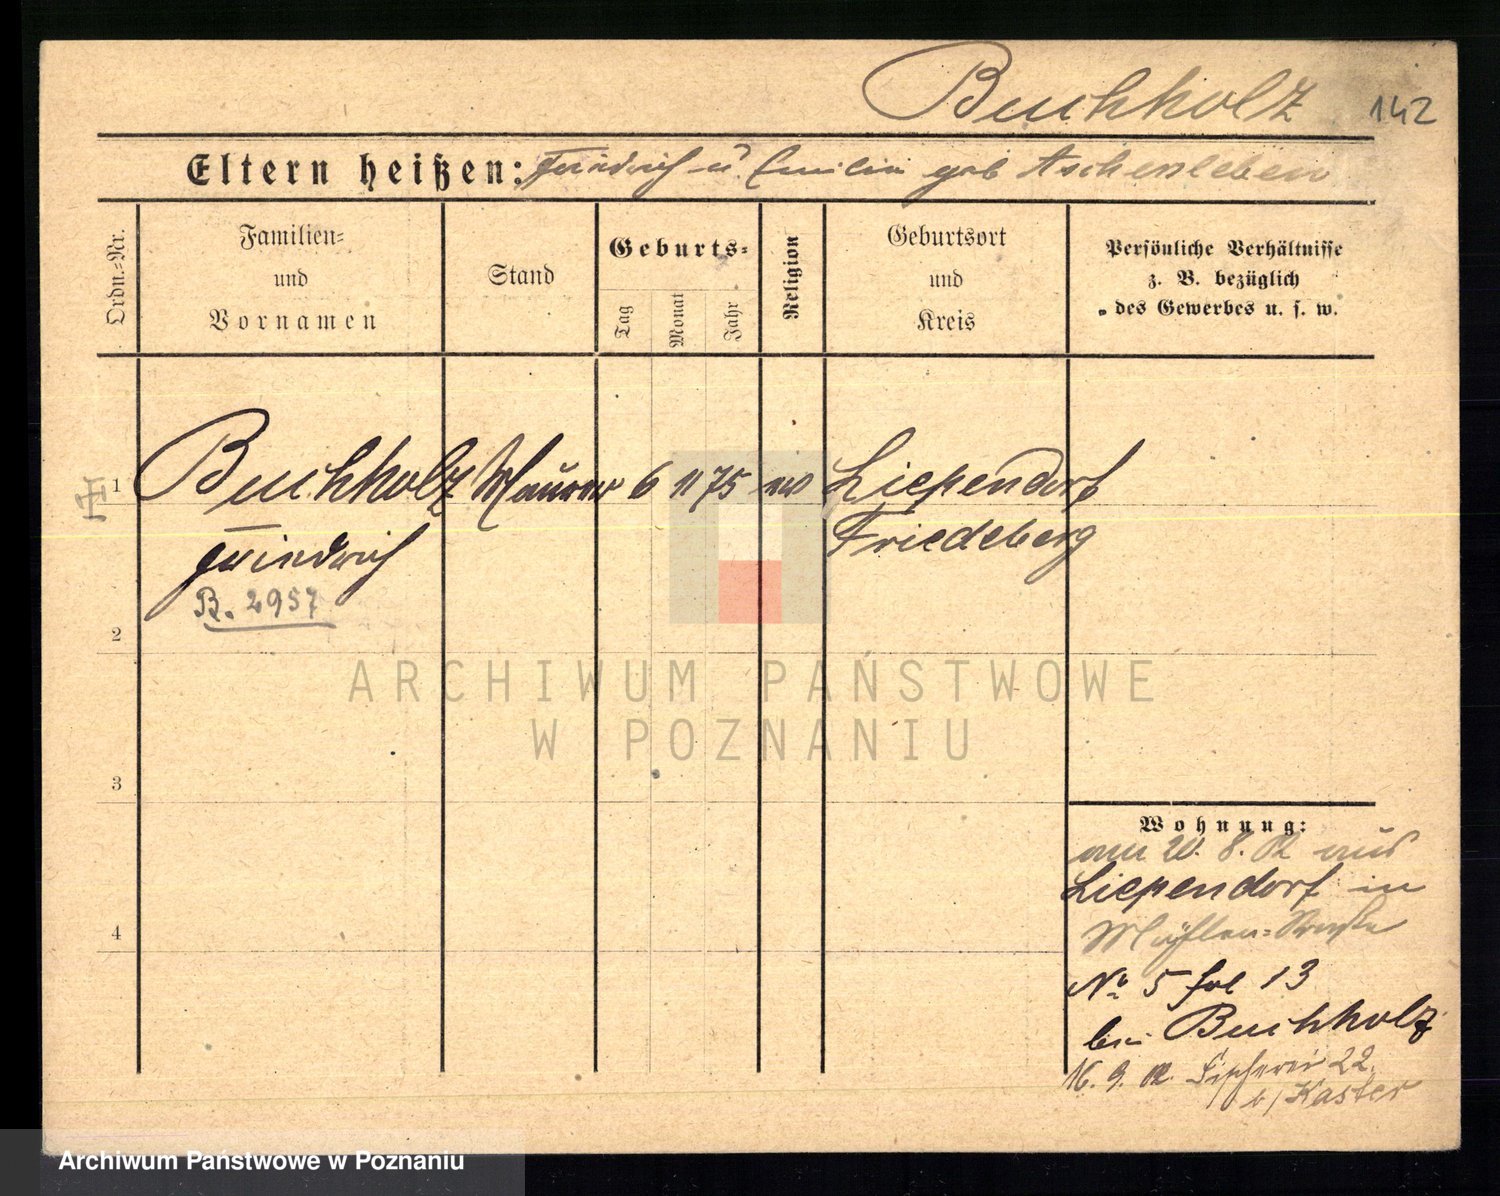 Buchholz 142
Eltern heißen: Friedrich u. Emilie geb Aschersleben
Ordn.-Nr.
Familien-
und
Vornamen
Stand
Geburts-
Tag
Monat
Jahr
Religion
Geburtsort
und
Kreis
Persönliche Verhältnisse
z. B. bezüglich
des Gewerbes u. s. w.
1 Buchholz Maurer 6 11 75 ev Liependorf
Friedrich Friedeberg
B. 2957
2
3
4
Wohnung:
am 20. 8. 02 aus
Liependorf in
Mühlen-Straße
No 5 fol 13
bei Buchholz
16. 9. 02. Fischerei 22.
b/ Kaster
ARCHIWUM PAŃSTWOWE
W POZNANIU
Archiwum Państwowe w Poznaniu